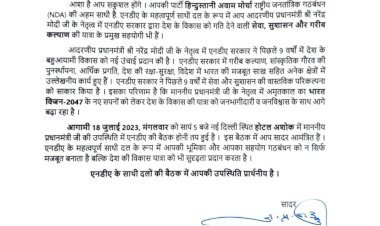 आशा है आप सकुशल होंगे। आपकी पार्टी हिन्दुस्तानी अवाम मोर्चा राष्ट्रीय जनतांत्रिक गठबंधन
(NDA) की अहम साथी है। एनडीए के महत्वपूर्ण साथी दल के रूप में आप आदरणीय प्रधानमंत्री श्री नरेन्द्र
मोदी जी के नेतृत्व में एनडीए सरकार द्वारा देश के विकास को गति देने वाली सेवा, सुशासन और गरीब
कल्याण की यात्रा के प्रमुख सहयोगी भी हैं।
आदरणीय प्रधानमंत्री श्री नरेन्द्र मोदी जी के नेतृत्व में एनडीए सरकार ने पिछले 9 वर्षों में देश के
बहुआयामी विकास को नई उंचाई प्रदान की है। एनडीए सरकार में गरीब कल्याण, सांस्कृतिक गौरव की
पुनर्स्थापना, आर्थिक प्रगति, देश की रक्षा-सुरक्षा, विदेश में भारत की मजबूत साख सहित अनेक क्षेत्रों में
उल्लेखनीय कार्य हुए हैं। एनडीए सरकार ने पिछले 9 वर्षों में सेवा और सुशासन की वास्तविक परिकल्पना
को साकार किया है। इसका परिणाम है कि माननीय प्रधानमंत्री जी के नेतृत्व में अमृतकाल का भारत
विज़न-2047 के नए सपनों को लेकर देश के विकास की यात्रा को जनभागीदारी व जनविश्वास के साथ आगे
बढ़ा रहा है।
आगामी 18 जुलाई 2023, मंगलवार को सायं 5 बजे नई दिल्ली स्थित होटल अशोक में माननीय
प्रधानमंत्री जी की उपस्थिति में एनडीए की बैठक होनी तय हुई है। इस बैठक में आप सादर आमंत्रित हैं।
एनडीए के महत्वपूर्ण साथी दल के रूप में आपकी भूमिका और आपका सहयोग गठबंधन को न सिर्फ
मजबूत बनाता है बल्कि देश की विकास यात्रा को भी सुदृढ़ता प्रदान करता है।
एनडीए के साथी दलों की बैठक में आपकी उपस्थिति प्रार्थनीय है।
सादर